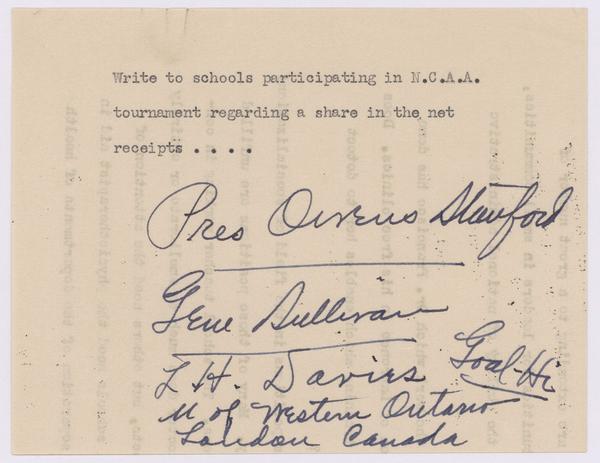 Write to schools participating in N.C.A.A.
tournament regarding a share in the net
receipts . . . .
Pres Owens Stanford
Gene Sullivan
L H. Davies Goal-Hi
U of Western Ontario
London Canada